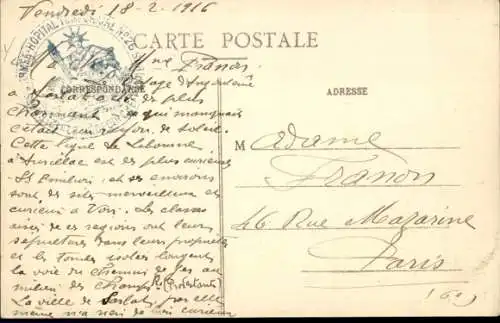 Vendredi 18-2-1916
CARTE POSTALE
CORRESPONDANCE
ADRESSE
Mme Franon
d'Angoulême
à Sarlat a été des plus
charmant ce qui manquait
c'était un rayon de soleil.
Cette ligne de Libourne
à Aurillac est des plus curieuses
St Emilion, et ses environs
sont des sites merveilleux et
curieux à voir. Les classes
aisées de ces regions ont leurs
sepultures dans leurs propriétés
et les tombes isolées longent
la voie du chemin de fer au
milieu des champs (Protestants)
La ville de Sarlat, par elle
même n'a rien de curieux
Madame
Franon
46 Rue Mazarine
Paris